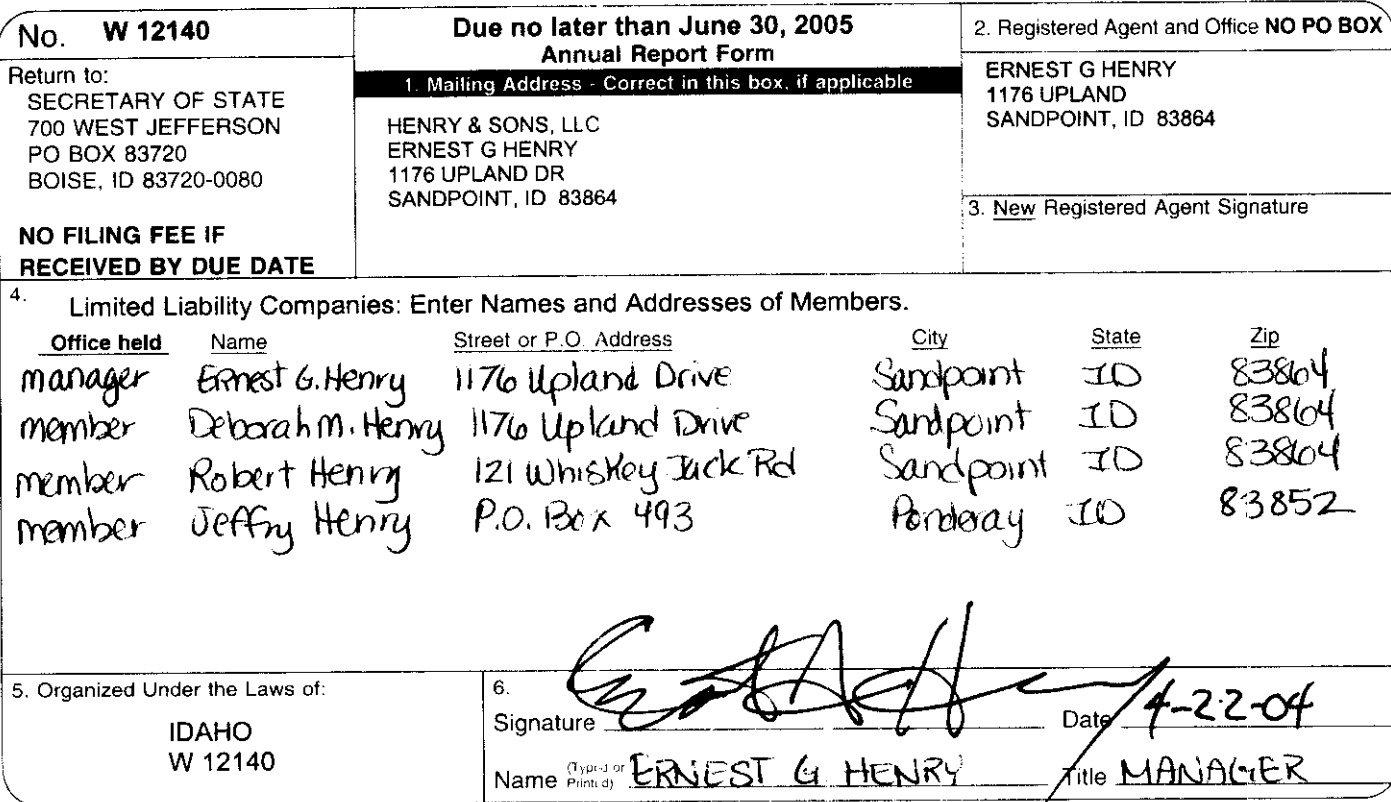 No. W 12140
Return to:
SECRETARY OF STATE
700 WEST JEFFERSON
PO BOX 83720
BOISE, ID 83720-0080
NO FILING FEE IF
RECEIVED BY DUE DATE
Due no later than June 30, 2005
Annual Report Form
1. Mailing Address - Correct in this box, if applicable
HENRY & SONS, LLC
ERNEST G HENRY
1176 UPLAND DR
SANDPOINT, ID 83864
2. Registered Agent and Office NO PO BOX
ERNEST G HENRY
1176 UPLAND
SANDPOINT, ID 83864
3. New Registered Agent Signature
4. Limited Liability Companies: Enter Names and Addresses of Members.
Office held Name Street or P.O. Address City State Zip
manager Ernest G. Henry 1176 Upland Drive Sandpoint ID 83864
member Deborah M. Henry 1176 Upland Drive Sandpoint ID 83864
member Robert Henry 121 Whiskey Jack Rd Sandpoint ID 83864
member Jeffry Henry P.O. Box 493 Ponderay ID 83852
5. Organized Under the Laws of:
IDAHO
W 12140
6.
Signature Date 4-22-04
Name (Typed or Printed) ERNEST G HENRY Title MANAGER